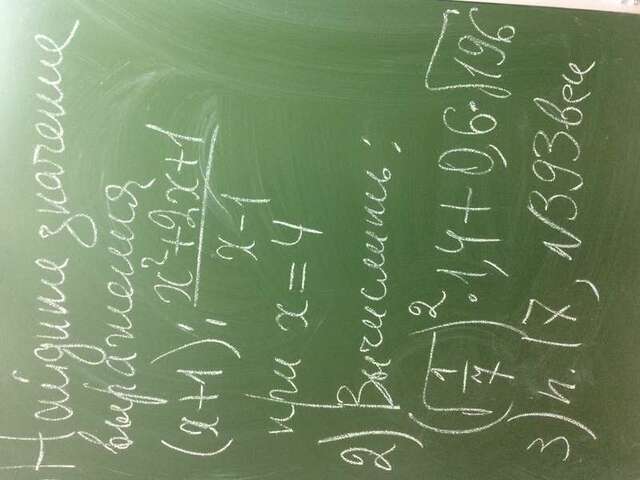 Найдите значение
выражения
(x+1) : \frac{x²+2x+1}{x-1}
при x = 4
2) Вычислить:
(√\frac{1}{7})² · 1,4 + 0,6 · √196
3) п. 17, №393 вен